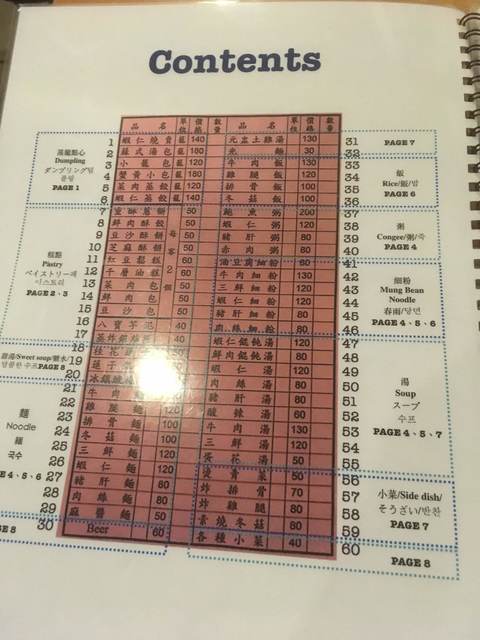 Contents
品 名 單位 價格 數量 品 名 單位 價格 數量
1 蝦仁燒賣 籠 140
2 蘇式湯包 籠 180
3 小籠包 籠 120
4 蟹黃小包 籠 180
5 菜肉蒸餃 籠 120
6
7
8 鮮肉酥餃 50
9 豆沙酥餅 50
10 芝麻酥餅 50
11 紅豆鬆糕 60
12 千層油糕 60
13 菜肉包 40
14 鮮肉包 50
15 豆沙包 50
16 八寶芋泥 40
17
18
19
20
21 牛肉麵
22 雞腿麵 120
23 排骨麵 100
24 冬菇麵 100
25 三鮮麵 120
26 蝦仁麵 120
27 豬肝麵 60
28 肉絲麵 80
29 麻醬麵 50
30 Beer 60
每客2個
元盅土雞湯 130 31
30 32
牛肉飯 130 33
雞腿飯 120 34
排骨飯 100 35
冬菇飯 100 36
鮑魚粥 200 37
蝦仁粥 120 38
豬肝粥 80 39
瘦肉粥 80 40
油豆腐細粉 60 41
牛肉細粉 130 42
三鮮細粉 120 43
蝦仁細粉 120 44
豬肝細粉 60 45
肉絲細粉 80 46
蝦仁餛飩湯 80 47
鮮肉餛飩湯 80 48
蝦仁湯 80 49
肉絲湯 80 50
豬肝湯 80 51
酸辣湯 60 52
牛肉湯 130 53
三鮮湯 120 54
蛋花湯 50 55
燙青菜 50 56
炸排骨 70 57
炸雞腿 80 58
素燒冬菇 80 59
各種小菜 40 60
蒸籠點心
Dumpling
PAGE 1
糕點
Pastry
PAGE 2、3
甜湯/Sweet soup/
PAGE 8
麵
Noodle
麺
국수
4、5、6
PAGE 7
飯
Rice/飯/밥
PAGE 6
粥
Congee/粥/죽
PAGE 4
細粉
Mung Bean
Noodle
春雨/당면
PAGE 4、5、6
湯
Soup
スープ
수프
PAGE 4、5、7
小菜/Side dish/
そうざい/반찬
PAGE 7
PAGE 8